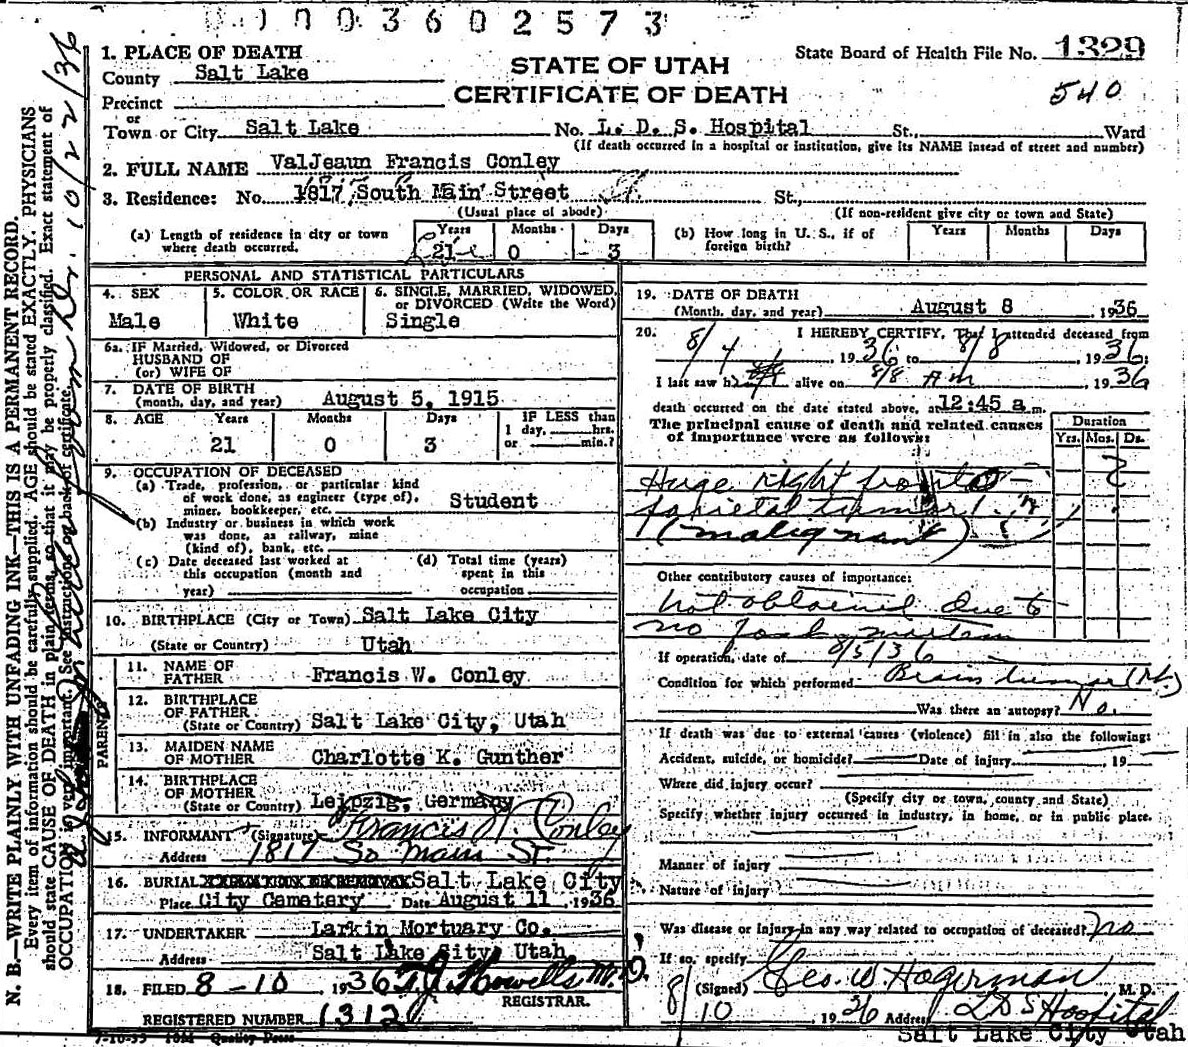 0 0 3 6 0 2 5 7 3
1. PLACE OF DEATH
County Salt Lake
State Board of Health File No. 1329
STATE OF UTAH
CERTIFICATE OF DEATH
540
Precinct
or
Town or City Salt Lake No. L. D. S. Hospital St., Ward
(If death occurred in a hospital or institution, give its NAME insead of street and number)
2. FULL NAME ValJeaun Francis Conley
3. Residence: No. 1817 South Main Street St.,
(Usual place of abode)
(If non-resident give city or town and State)
(a) Length of residence in city or town where death occurred.
Years Months Days
21 0 3
Life
(b) How long in U. S., if of foreign birth?
Years Months Days
PERSONAL AND STATISTICAL PARTICULARS
4. SEX
Male
5. COLOR OR RACE
White
6. SINGLE, MARRIED, WIDOWED, or DIVORCED (Write the Word)
Single
6a. IF Married, Widowed, or Divorced
HUSBAND OF
(or) WIFE OF
7. DATE OF BIRTH
(month, day, and year) August 5, 1915
8. AGE Years Months Days
21 0 3
IF LESS than
1 day, hrs.
or min.?
9. OCCUPATION OF DECEASED
(a) Trade, profession, or particular kind
of work done, as engineer (type of),
miner, bookkeeper, etc. Student
(b) Industry or business in which work
was done, as railway, mine
(kind of), bank, etc.
(c) Date deceased last worked at
this occupation (month and
year)
(d) Total time (years)
spent in this
occupation
10. BIRTHPLACE (City or Town) Salt Lake City
(State or Country) Utah
PARENTS
11. NAME OF
FATHER Francis W. Conley
12. BIRTHPLACE
OF FATHER
(State or Country) Salt Lake City, Utah
13. MAIDEN NAME
OF MOTHER Charlotte K. Gunther
14. BIRTHPLACE
OF MOTHER
(State or Country) Leipzig, Germany
15. INFORMANT (Signature) Francis W. Conley
Address 1817 So Main St.
16. BURIAL Salt Lake City
Place City Cemetery Date August 11, 1936
17. UNDERTAKER Larkin Mortuary Co.
Address Salt Lake City, Utah
18. FILED 8-10 1936 T. J. Howells M. D.
REGISTRAR.
REGISTERED NUMBER 1312
7-10-35 10M Quality Press
19. DATE OF DEATH
(Month, day, and year) August 8 , 1936
20. I HEREBY CERTIFY, That I attended deceased from
8/4 , 1936 to 8/8 , 1936
I last saw h alive on 8/8 AM , 1936
death occurred on the date stated above, at 12:45 a m.
The principal cause of death and related causes
of importance were as follows:
Duration
Yrs. Mos. Ds.
Huge right fronto-
parietal tumor
(malignant)
?
Other contributory causes of importance:
not obtained due to
no post mortem
If operation, date of 8/5/36
Condition for which performed Brain tumor (Rt.)
Was there an autopsy? No.
If death was due to external causes (violence) fill in also the following:
Accident, suicide, or homicide? Date of injury 19
Where did injury occur?
(Specify city or town, county and State)
Specify whether injury occurred in industry, in home, or in public place.
Manner of injury
Nature of injury
Was disease or injury in any way related to occupation of deceased? no
If so, specify
(Signed) Geo. W Hagerman M. D.
8/10 1936 Address LDS Hospital
Salt Lake City Utah
N. B.—WRITE PLAINLY WITH UNFADING INK—THIS IS A PERMANENT RECORD.
Every item of information should be carefully supplied. AGE should be stated EXACTLY. PHYSICIANS
should state CAUSE OF DEATH in plain terms, so that it may be properly classified. Exact statement of
OCCUPATION is very important. See instructions on back of certificate.
10/22/36